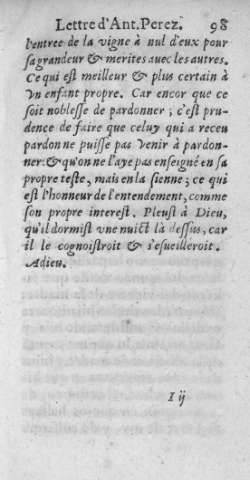 Lettre d'Ant. Perez. 98
l'entree de la vigne à nul d'eux pour
sa grandeur & merites avec les autres.
Ce qui est meilleur & plus certain à
vn enfant propre. Car encor que ce
soit noblesse de pardonner ; c'est pru-
dence de faire que celuy qui a receu
pardon ne puisse pas venir à pardon-
ner: & qu'on ne l'aye pas enseigné en sa
propre teste, mais en la sienne ; ce qui
est l'honneur de l'entendement, comme
son propre interest. Pleust à Dieu,
qu'il dormist vne nuict là dessus, car
il le cognoistroit & s'esueilleroit.
Adieu.
I ij